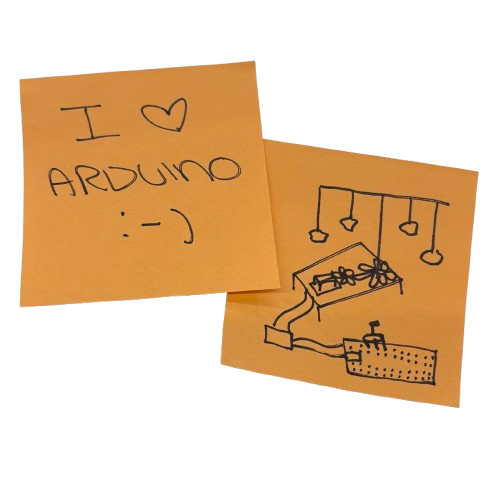 I ♡
ARDUINO
:-)